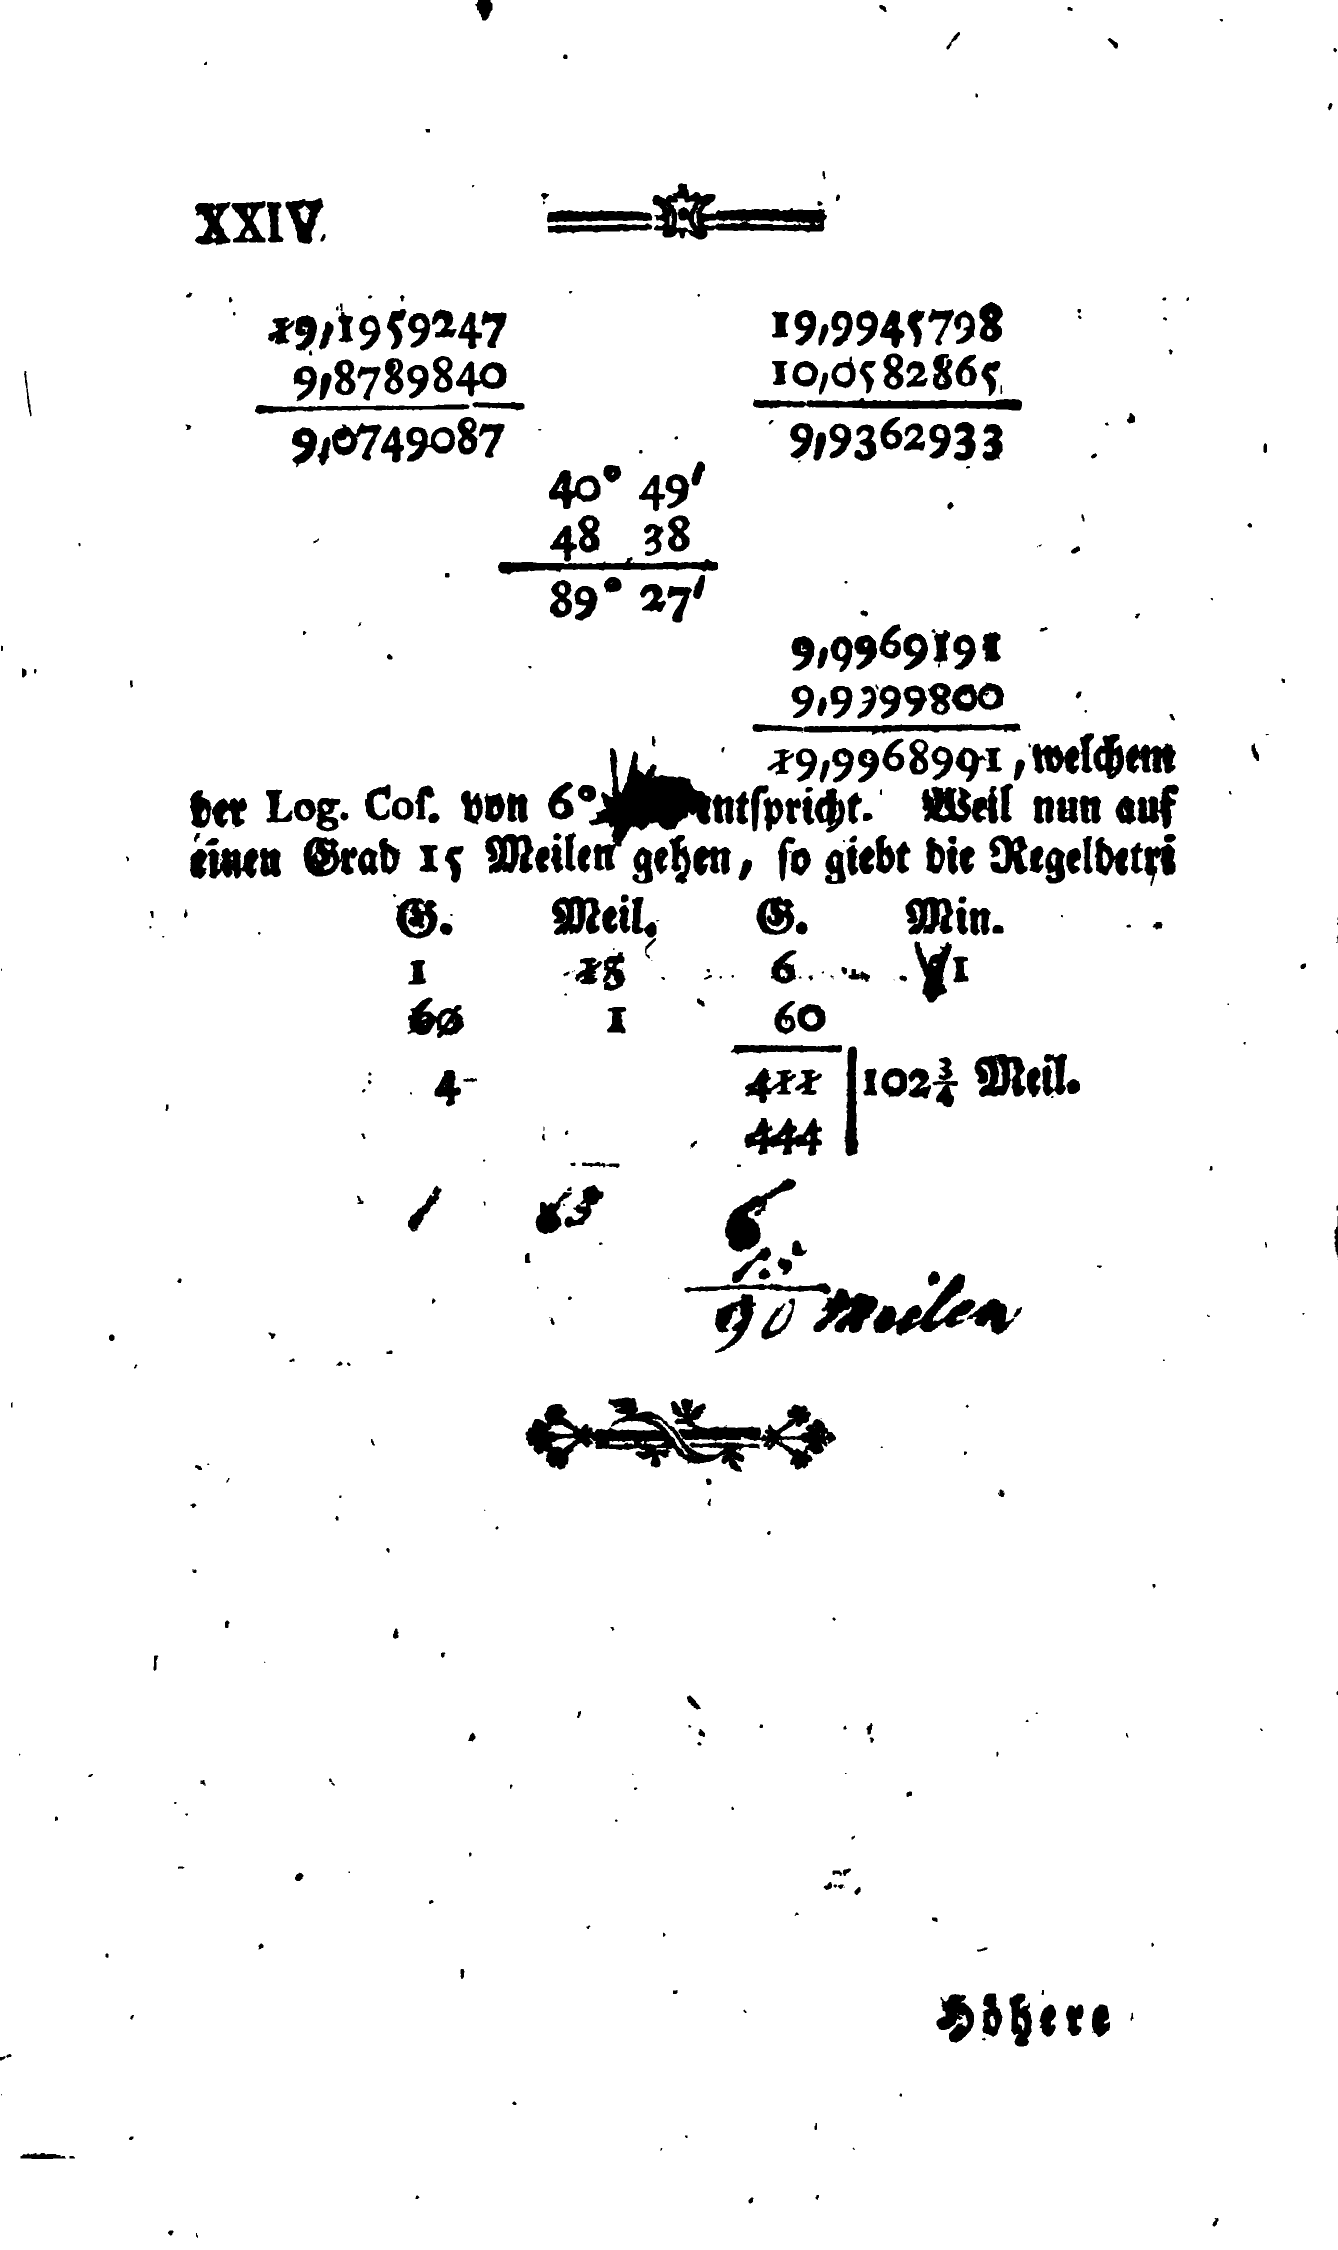 XXIV
19,1959247 19,9945798
9,8789840 10,0582865
9,0749087 9,9362933
40° 49′
48 38
89° 27′
9,9969191
9,9399800
19,9968991, welchem
der Log. Coſ. von 6° entſpricht. Weil nun auf
einen Grad 15 Meilen gehen, ſo giebt die Regeldetri
G. Meil. G. Min.
1 15 6 1
60 1 60
4 411 | 102¾ Meil.
444
1 15 6
15
90 Meilen
Höhere